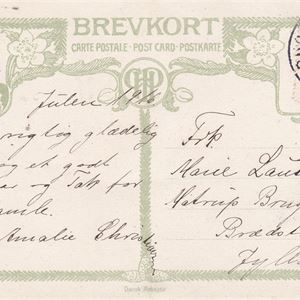 BREVKORT
CARTE POSTALE · POST CARD · POSTKARTE
Julen 1916
rigtig glædelig
og et godt
aar og Tak for
gamle.
Amalie Christian
Frk.
Marie Laur
Matrup Brug
Brædst
Jylland
Dansk Arbejde